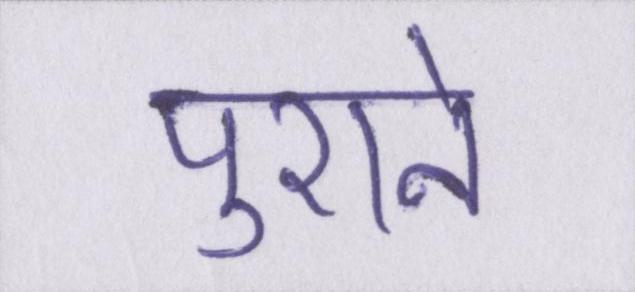 पुराने